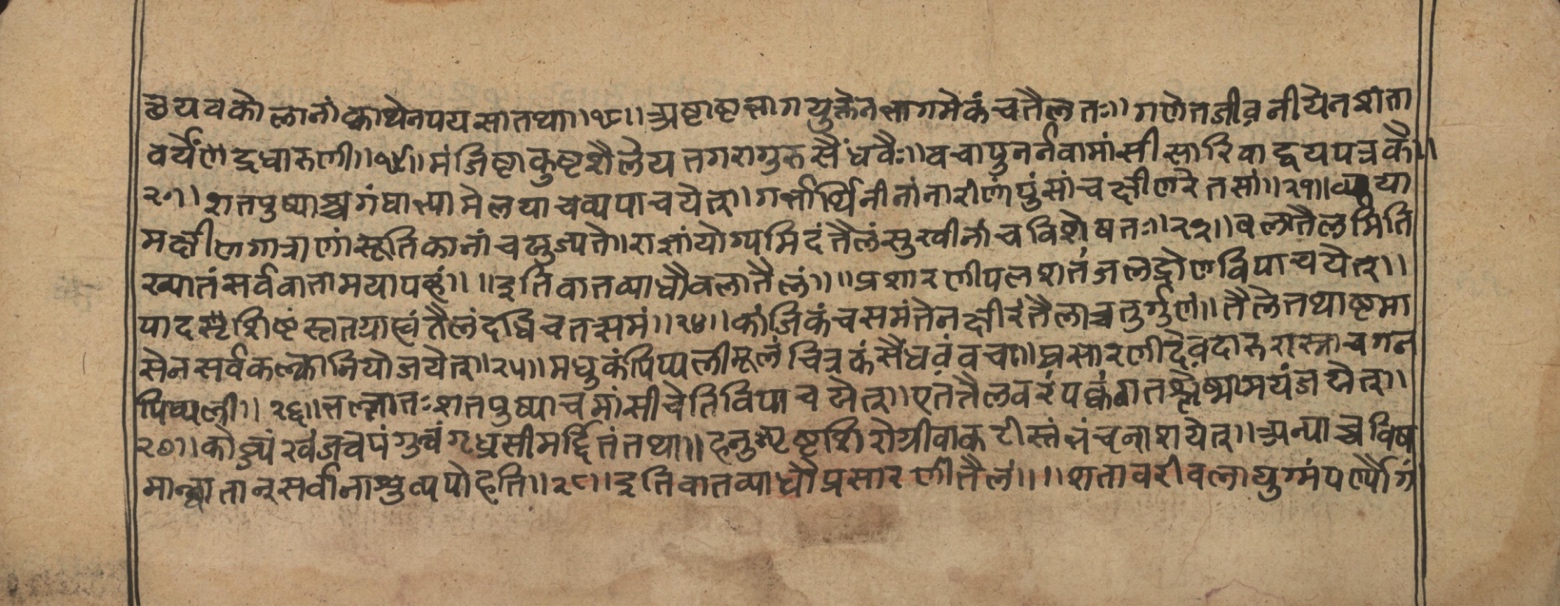 त्थयवकोलानां क्वाथेन पयसा तथा॥१८॥अष्टाष्टभागयुक्तेन भागमेकं च तैलतः॥गणेन जीवनीयेन शता
वर्येण द्रघारुणी॥१९॥मंजिष्टाकुष्टशैलेयतगरागुरुसैंधवैः॥वचापुनर्नवामांसीसारिवाद्वयपत्रकैः॥
२०॥शतपुष्पाश्वगंधाभ्यामेलयाचव्यपाचयेत्॥गर्भार्थिनीनां नारीणां पुंसां च क्षीणरेतसां॥२१॥व्या
मक्षीणगात्राणां सूतिकानां च युज्यते॥राज्ञां योग्यमिदं तैलं सुखीनां च विशेषतः॥२२॥बलातैलमिति
ख्यातं सर्ववातामयापहं॥॥इति वातव्याधौ बलातैलं॥॥प्रशारणीपलशतं जलद्रोणे विपाचयेत्॥
पादशिष्टं तैलं दधि च तत्समं॥२४॥कांजिकं च समं तेन क्षीरं तैलाच्चतुर्गुणं॥तैले तथाष्टमा
सेन सर्वकल्कानियोजयेत्॥२५॥मधुकं पिप्पलीमूलं चित्रकं सैंधवं वचा॥प्रसारणी देवदारु रास्ना च गज
पिप्पली॥२६॥भल्लातः शतपुष्पा च मांसी चेति विपाचयेत्॥एतत्तैलवरं पक्वं वातश्लेष्मामयं जयेत्॥
२७॥कौब्ज्यं गृध्रसीमर्द्दितं तथा॥हनुपृष्टशिरोग्रीवाकटीस्तंभं च नाशयेत्॥अन्याच्च विष
मान्वातान्सर्वानाशु व्यपोहति॥२८॥इति वातव्याधौ प्रसारणीतैलं॥॥शतावरी बलायुग्मं पर्ण्यौ ग